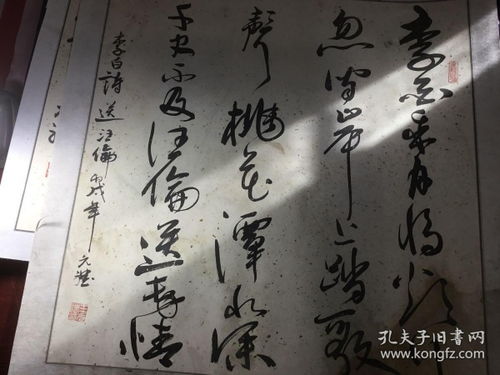 李白乘舟将欲行
忽闻岸上踏歌
声桃花潭水深
千尺不及汪倫送我情
李白詩送汪倫丙戌年
孔夫子旧书网
www.kongfz.com